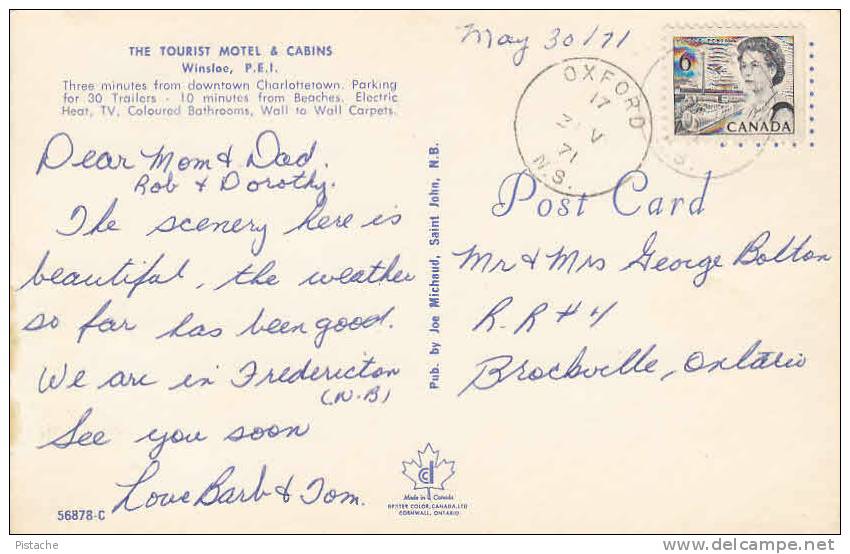 THE TOURIST MOTEL & CABINS
Winsloe, P.E.I.
Three minutes from downtown Charlottetown. Parking
for 30 Trailers - 10 minutes from Beaches. Electric
Heat, TV, Coloured Bathrooms, Wall to Wall Carpets.
Dear Mom & Dad.
Rob & Dorothy.
The scenery here is
beautiful, the weather
so far has been good.
We are in Fredericton
(N.B)
See you soon
Love Barb & Tom.
56878-C
Pub. by Joe Michaud, Saint John, N.B.
Made in Canada
DEXTER COLOR, CANADA, LTD
CORNWALL, ONTARIO
May 30/71
OXFORD
17
V
71
N.S.
6
CANADA
Post Card
Mr & Mrs George Bolton
R.R # 4
Brockville, Ontario
Pistache
delcampe.net